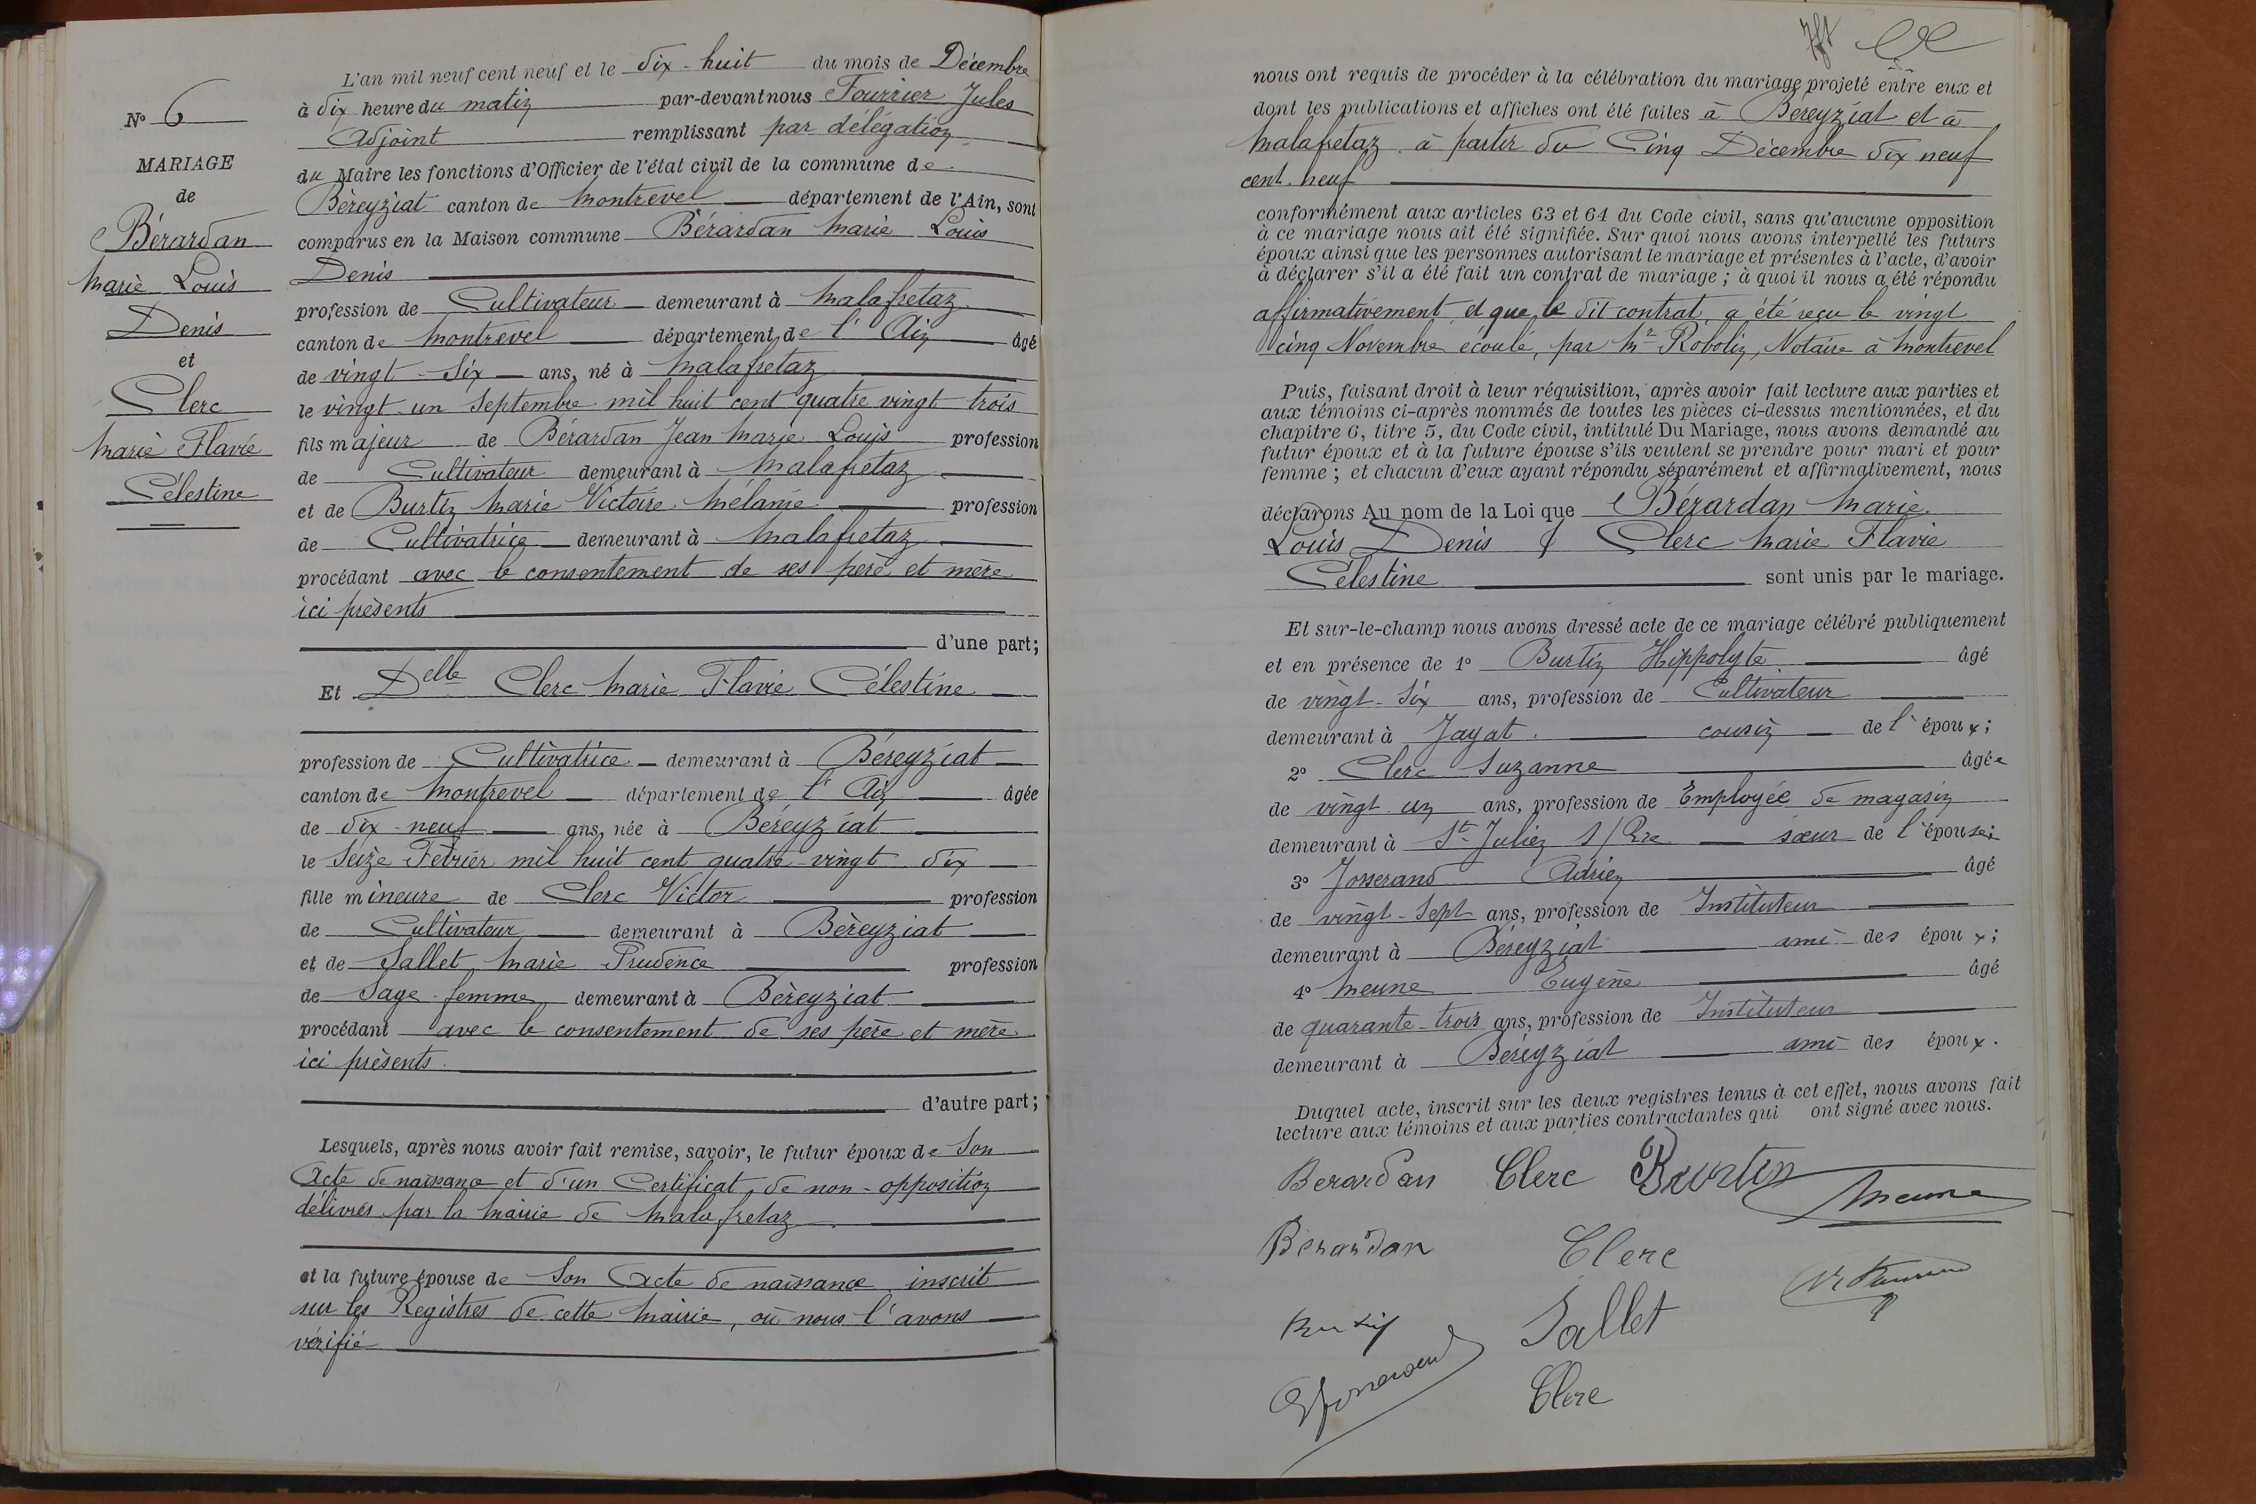 N° 6
MARIAGE
de
Bérardan
Marie Louis
Denis
et
Clerc
Marie Flavie
Célestine
L'an mil neuf cent neuf et le dix-huit du mois de Décembre
à dix heure du matin par-devant nous Fourrier Jules
Adjoint remplissant par délégation
du Maire les fonctions d'Officier de l'état civil de la commune de
Béreyziat canton de Montrevel département de l'Ain, sont
comparus en la Maison commune Bérardan Marie Louis
Denis
profession de Cultivateur demeurant à Malafretaz
canton de Montrevel département de l'Ain âgé
de vingt-six ans, né à Malafretaz
le vingt-un Septembre mil huit cent quatre vingt trois
fils majeur de Bérardan Jean Marie Louis profession
de Cultivateur demeurant à Malafretaz
et de Burtin Marie Victoire Mélanie profession
de Cultivatrice demeurant à Malafretaz
procédant avec le consentement de ses père et mère
ici présents
d'une part;
Et Delle Clerc Marie Flavie Célestine
profession de Cultivatrice demeurant à Béreyziat
canton de Montrevel département de l'Ain âgée
de dix-neuf ans, née à Béreyziat
le Seize Février mil huit cent quatre-vingt dix
fille mineure de Clerc Victor profession
de Cultivateur demeurant à Béreyziat
et de Sallet Marie Prudence profession
de Sage-femme demeurant à Béreyziat
procédant avec le consentement de ses père et mère
ici présents
d'autre part;
Lesquels, après nous avoir fait remise, savoir, le futur époux de Son
Acte de naissance et d'un Certificat de non-opposition
délivrés par la Mairie de Malafretaz
et la future épouse de Son Acte de naissance inscrit
sur les Registres de cette Mairie, où nous l'avons
vérifié
nous ont requis de procéder à la célébration du mariage projeté entre eux et
dont les publications et affiches ont été faites à Béreyziat et à
Malafretaz à partir du Cinq Décembre dix neuf
cent neuf
conformément aux articles 63 et 64 du Code civil, sans qu'aucune opposition
à ce mariage nous ait été signifiée. Sur quoi nous avons interpellé les futurs
époux ainsi que les personnes autorisant le mariage et présentes à l'acte, d'avoir
à déclarer s'il a été fait un contrat de mariage; à quoi il nous a été répondu
affirmativement et que le dit contrat a été reçu le vingt
cinq Novembre écoulé, par Me Robolin, Notaire à Montrevel
Puis, faisant droit à leur réquisition, après avoir fait lecture aux parties et
aux témoins ci-après nommés de toutes les pièces ci-dessus mentionnées, et du
chapitre 6, titre 5, du Code civil, intitulé Du Mariage, nous avons demandé au
futur époux et à la future épouse s'ils veulent se prendre pour mari et pour
femme; et chacun d'eux ayant répondu séparément et affirmativement, nous
déclarons Au nom de la Loi que Bérardan Marie
Louis Denis & Clerc Marie Flavie
Célestine sont unis par le mariage.
Et sur-le-champ nous avons dressé acte de ce mariage célébré publiquement
et en présence de 1° Burtin Hippolyte âgé
de vingt-six ans, profession de Cultivateur
demeurant à Jayat cousin de l'époux;
2° Clerc Suzanne âgée
de vingt un ans, profession de Employée de magasin
demeurant à St Julien s/ Rre sœur de l'épouse;
3° Josserand Adrien âgé
de vingt-sept ans, profession de Instituteur
demeurant à Béreyziat ami des époux;
4° Meune Eugène âgé
de quarante-trois ans, profession de Instituteur
demeurant à Béreyziat ami des époux.
Duquel acte, inscrit sur les deux registres tenus à cet effet, nous avons fait
lecture aux témoins et aux parties contractantes qui ont signé avec nous.
Berardan Clerc Burtin
Meune
Bérardan Clerc
Burtin Sallet
Josserand
Clerc